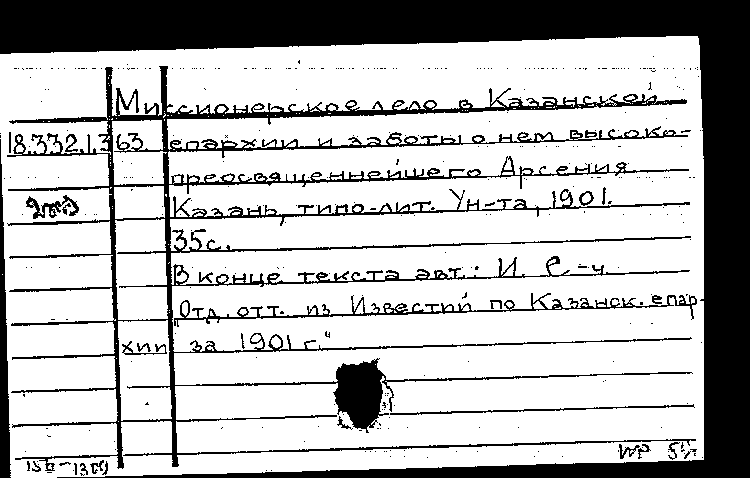 Миссионерское дело в Казанской
18.332.1.363 епархии и заботы о нем высоко-
преосвященнейшего Арсения
Казань, типо-лит. Ун-та, 1901.
35с.
В конце текста авт.: И. Е-ч.
"Отд. отт. из Известий по Казанск. епар-
хии за 1901 г."